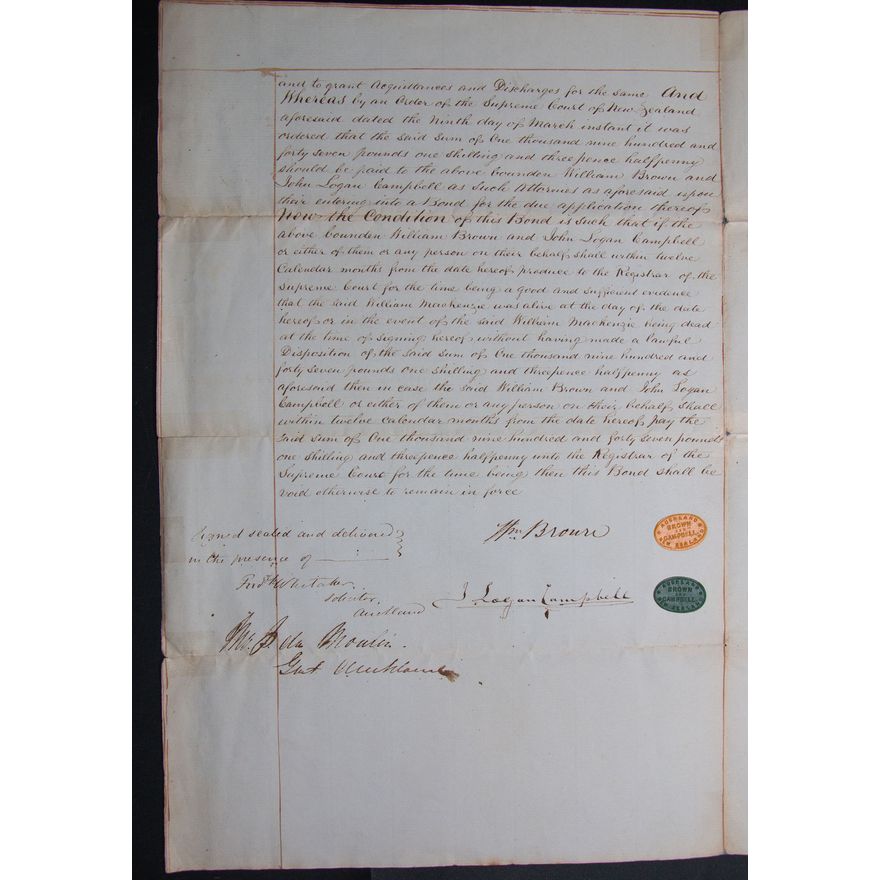 and to grant Acquittances and Discharges for the same And
Whereas by an Order of the Supreme Court of New Zealand
aforesaid dated the Ninth day of March instant it was
ordered that the said sum of One thousand nine hundred and
forty seven pounds one shilling and threepence halfpenny
should be paid to the above bounden William Brown and
John Logan Campbell as such Attornies as aforesaid upon
their entering into a Bond for the due application thereof
Now the Condition of this Bond is such that if the
above bounden William Brown and John Logan Campbell
or either of them or any person on their behalf shall within twelve
Calendar months from the date hereof produce to the Registrar of the
Supreme Court for the time being a good and sufficient evidence
that the said William Mackenzie was alive at the day of the date
hereof or in the event of the said William Mackenzie being dead
at the time of signing hereof without having made a lawful
Disposition of the said sum of One thousand nine hundred and
forty seven pounds one shilling and threepence halfpenny as
aforesaid then in case the said William Brown and John Logan
Campbell or either of them or any person on their behalf shall
within twelve Calendar months from the date hereof pay the
said sum of One thousand nine hundred and forty seven pounds
one shilling and threepence halfpenny unto the Registrar of the
Supreme Court for the time being then this Bond shall be
void otherwise to remain in force
Signed sealed and delivered
in the presence of
Wm Brown
AUCKLAND
BROWN
AND
CAMPBELL
NEW ZEALAND
Fredk Whitaker
Solicitor
Auckland
J Logan Campbell
AUCKLAND
BROWN
AND
CAMPBELL
NEW ZEALAND
Moulin
Auckland